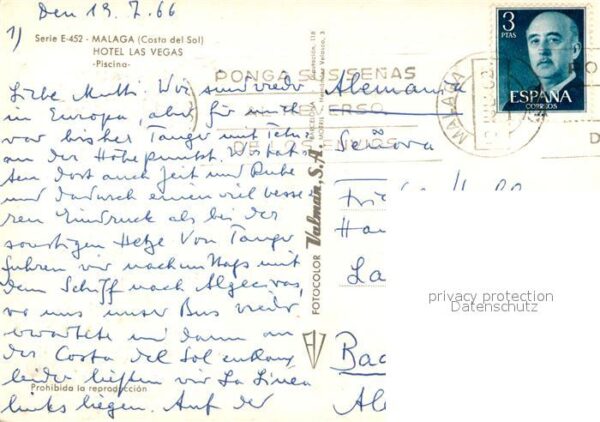 Den 19.7.66
1)
Serie E-452 - MALAGA (Costa del Sol)
HOTEL LAS VEGAS
-Piscina-
Liebe Mutti. Wir sind wieder
in Europa, aber für mich
war bisher Tanger mit
an der Höhepunkt. Wir hat-
ten dort auch Zeit und Ruhe
und dadurch einen viel besse-
ren Eindruck als bei der
sonstigen Hetze. Von Tanger
fuhren wir nachmittags mit
dem Schiff nach Algeciras,
wo uns unser Bus wieder
erwartete und dann an
der Costa del Sol entlang
leider ließen wir La Linea
links liegen. Auf der
Prohibida la reproducción
FOTOCOLOR Valman, S.A.
PONGA SUS SEÑAS
AL REVERSO
DE LOS ENVIOS
MALAGA
3
PTAS
ESPAÑA
CORREOS
Alemania
Señora
Ha
La
Bad
Al
privacy protection
Datenschutz